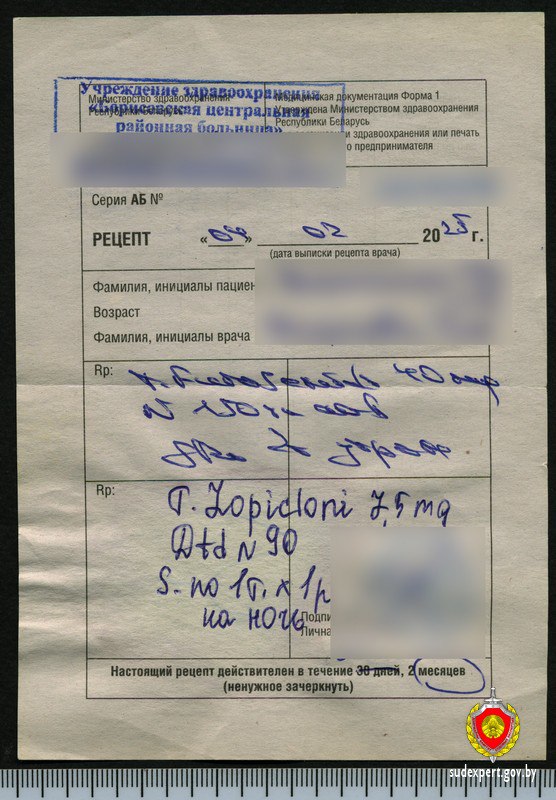 Учреждение здравоохранения
Министерство здравоохранения
Республики Беларусь
«Борисовская центральная
районная больница»
Медицинская документация Форма 1
Утверждена Министерством здравоохранения
Республики Беларусь
и здравоохранения или печать
го предпринимателя
Серия АБ №
РЕЦЕПТ « » 02 2025 г.
(дата выписки рецепта врача)
Фамилия, инициалы пациен
Возраст
Фамилия, инициалы врача
Rp:
Rp:
T. Zopicloni 7,5 mg
Dtd N 90
S. по 1т. х 1р
на ночь
Подпи
Лична
Настоящий рецепт действителен в течение 30 дней, 2 месяцев
(ненужное зачеркнуть)
sudexpert.gov.by